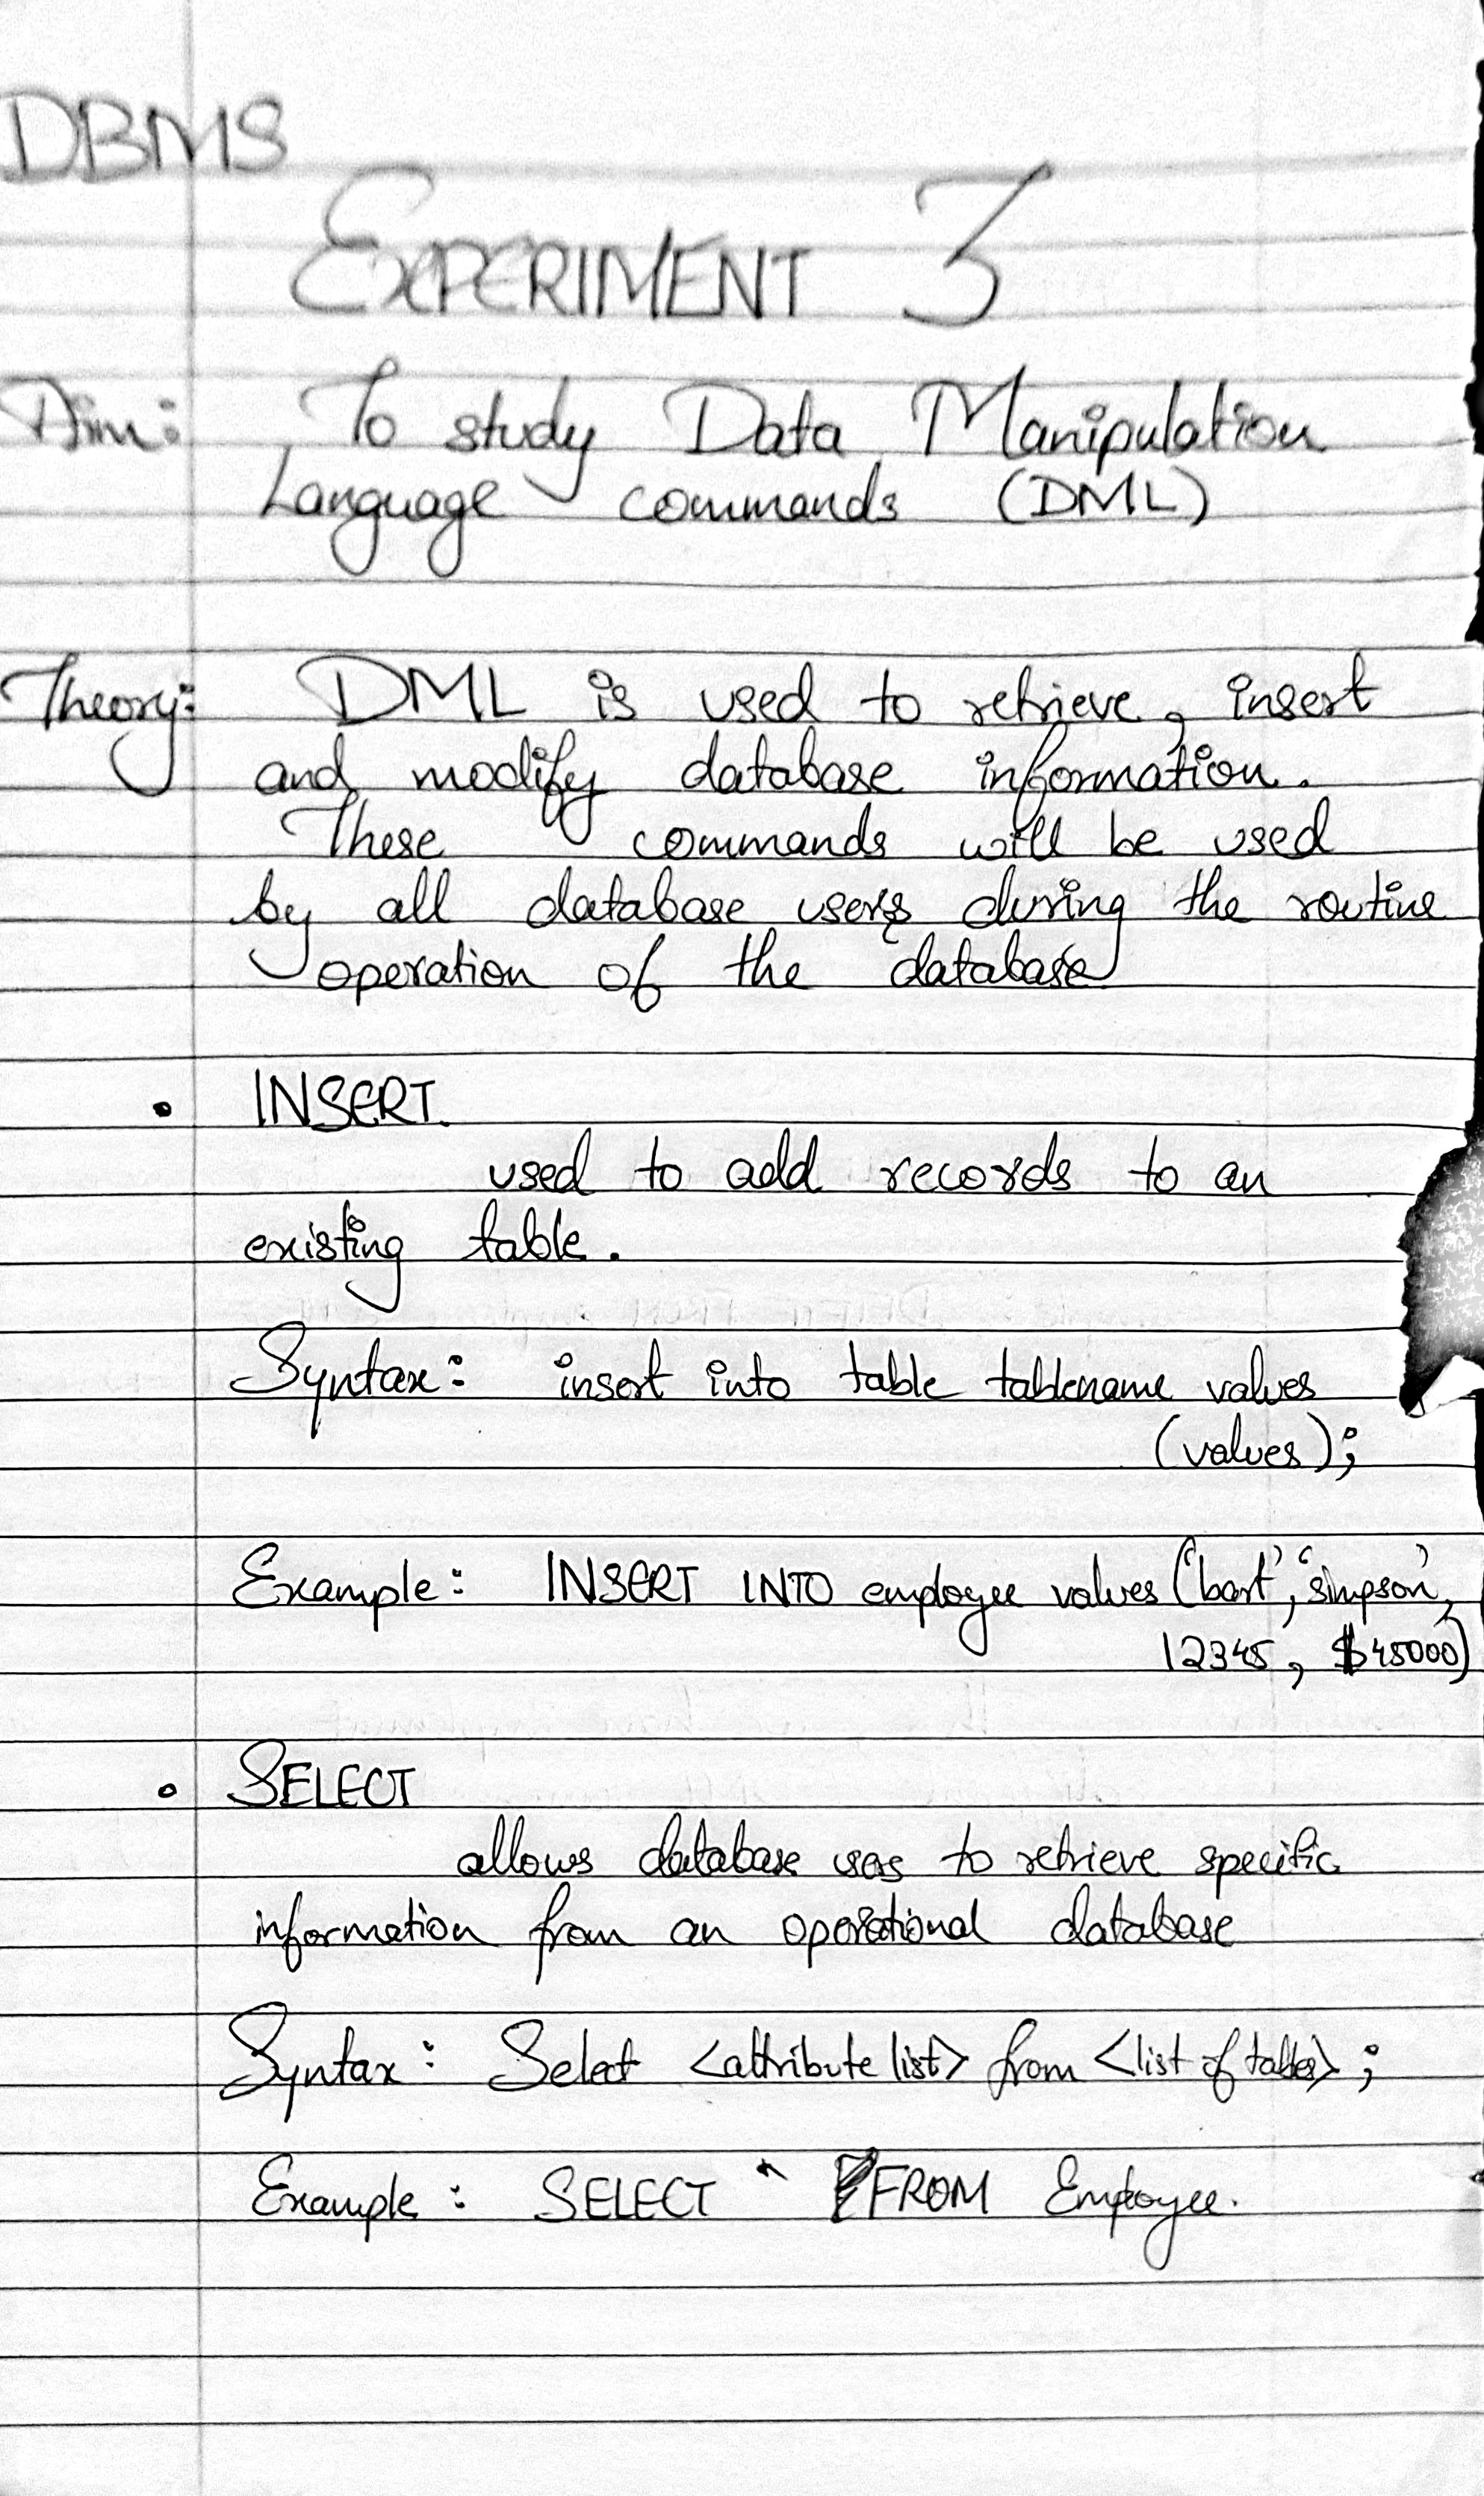 DBMS
EXPERIMENT 3
Aim: To study Data Manipulation
Language commands (DML)
Theory: DML is used to retrieve, insert
and modify database information.
These commands will be used
by all database users during the routine
operation of the database
• INSERT.
used to add records to an
existing table.
Syntax: insert into table tablename values
(values);
Example: INSERT INTO employee values ('bart', 'simpson',
12345, $45000)
• SELECT
allows database users to retrieve specific
information from an operational database
Syntax: Select <attribute list> from <list of tables>;
Example: SELECT * FROM Employee.